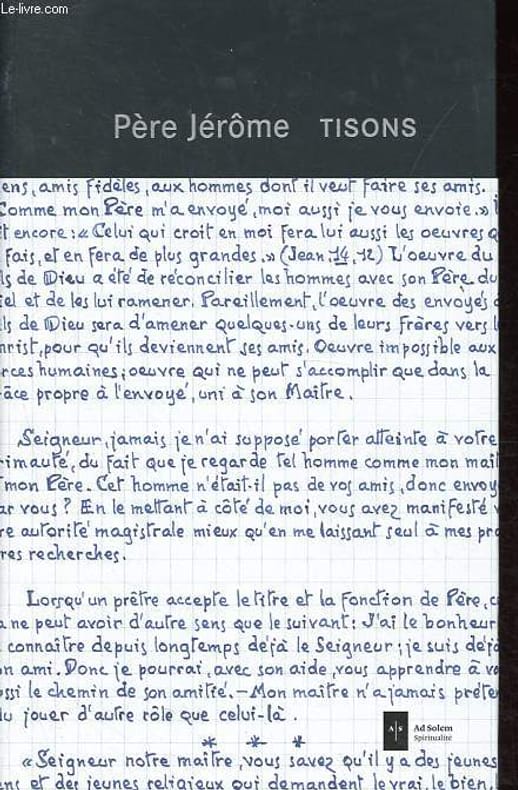 Le-livre.com
Père Jérôme TISONS
ens, amis fidèles, aux hommes dont il veut faire ses amis.
Comme mon Père m'a envoyé, moi aussi je vous envoie. »
it encore : « Celui qui croit en moi fera lui aussi les oeuvres q
fais, et en fera de plus grandes. » (Jean 14, 12) L'oeuvre du
ls de Dieu a été de réconcilier les hommes avec son Père du
iel et de les lui ramener. Pareillement, l'oeuvre des envoyés
ls de Dieu sera d'amener quelques-uns de leurs frères vers l
hrist, pour qu'ils deviennent ses amis. Oeuvre impossible aux
rces humaines ; oeuvre qui ne peut s'accomplir que dans la
âce propre à l'envoyé, uni à son Maître.
Seigneur, jamais je n'ai supposé porter atteinte à votre
rimauté, du fait que je regarde tel homme comme mon maît
mon Père. Cet homme n'était-il pas de vos amis, donc envoy
ar vous ? En le mettant à côté de moi, vous avez manifesté v
re autorité magistrale mieux qu'en me laissant seul à mes pro
res recherches.
Lorsqu'un prêtre accepte le titre et la fonction de Père, c
a ne peut avoir d'autre sens que le suivant : J'ai le bonheur
connaître depuis longtemps déjà le Seigneur ; je suis déjà
on ami. Donc je pourrai, avec son aide, vous apprendre à vo
ussi le chemin de son amitié. – Mon maître n'a jamais préten
du jouer d'autre rôle que celui-là.
* * *
A|S Ad Solem
Spiritualité
« Seigneur notre maître, vous savez qu'il y a des jeunes
ens et des jeunes religieux qui demandent le vrai, le bien,